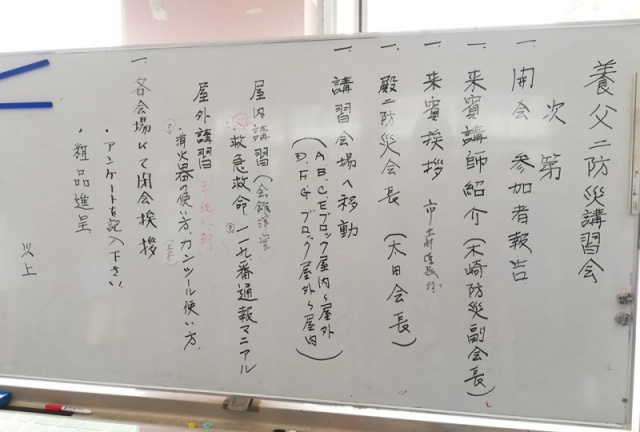 養父二防災講習会
次第
一 開会 参加者報告
一 来賓講師紹介(木崎防災副会長)
一 来賓挨拶 市
一 殿二防災会長(太田会長)
一 講習会場へ移動
(A.B.C.Eブロック屋内〜屋外
D.F.Gブロック屋外〜屋内)
屋内講習(会館洋室
・救急救命 一一九番通報マニアル
屋外講習
・消火器の使い方、カンツール使い方.
一 各会場ドて閉会挨拶
・アンケートを記入下さい
・粗品進呈
以上